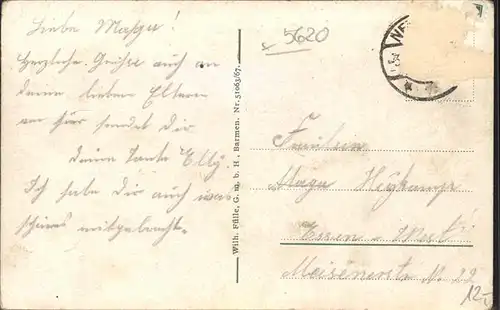 Liebe Magga!
Herzliche Grüße auch an
deine lieben Eltern
sendet Dir
deine Tante Elly.
Ich habe Dir auch was
schönes mitgebracht.
Wilh. Fülle, G. m. b. H., Barmen. Nr. 31063/67.
5620
Fräulein
Heykamp
Essen - West
No. 22
12,-